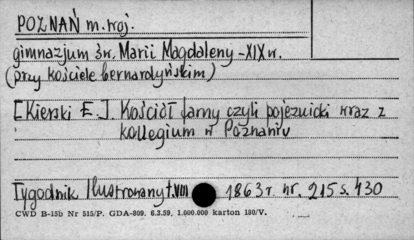 POZNAŃ m. woj.
gimnazjum św. Marii Magdaleny - XIX w.
(przy kościele bernardyńskim)
[Kierski E.] Kościół farny czyli pojezuicki wraz z
kollegium w Poznaniu
Tygodnik Ilustrowany t. VIII 1863 r nr. 215 s. 430
CWD B-15b Nr 515/P. GDA-809. 6.3.59. 1.000.000 karton 180/V.